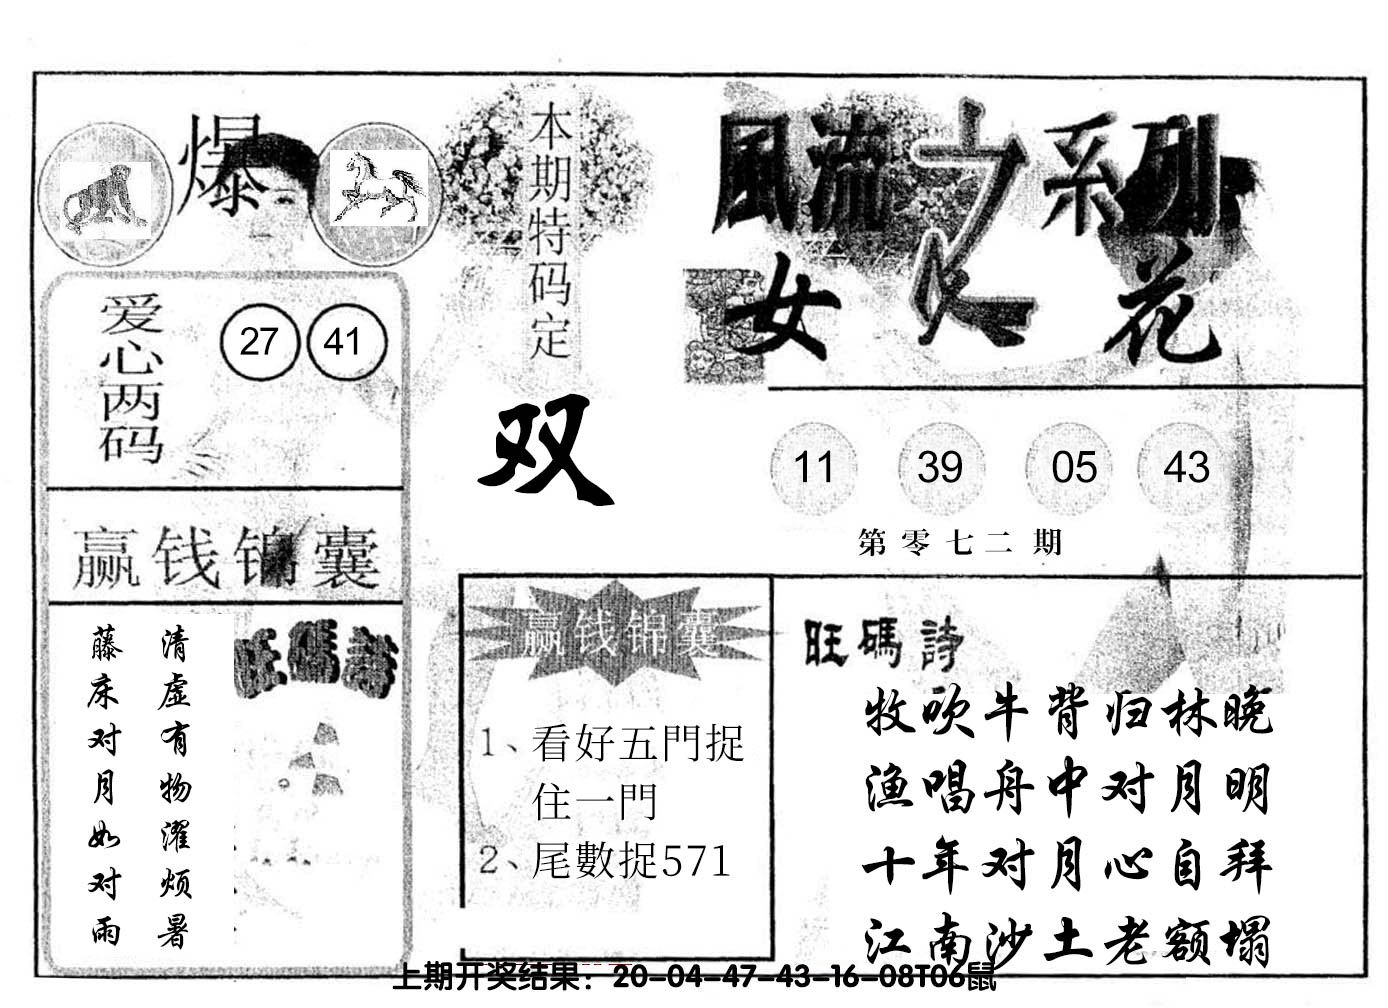 爆
爱心两码
27 41
赢钱锦囊
清虚有物濯烦暑
藤床对月如对雨
旺碼詩
本期特码定
双
赢钱锦囊
1、看好五門捉
住一門
2、尾數捉571
風流之系列
女人花
11 39 05 43
第零七二期
旺碼詩
牧吹牛背归林晚
渔唱舟中对月明
十年对月心自拜
江南沙土老额塌
上期开奖结果：20-04-47-43-16-08T06鼠